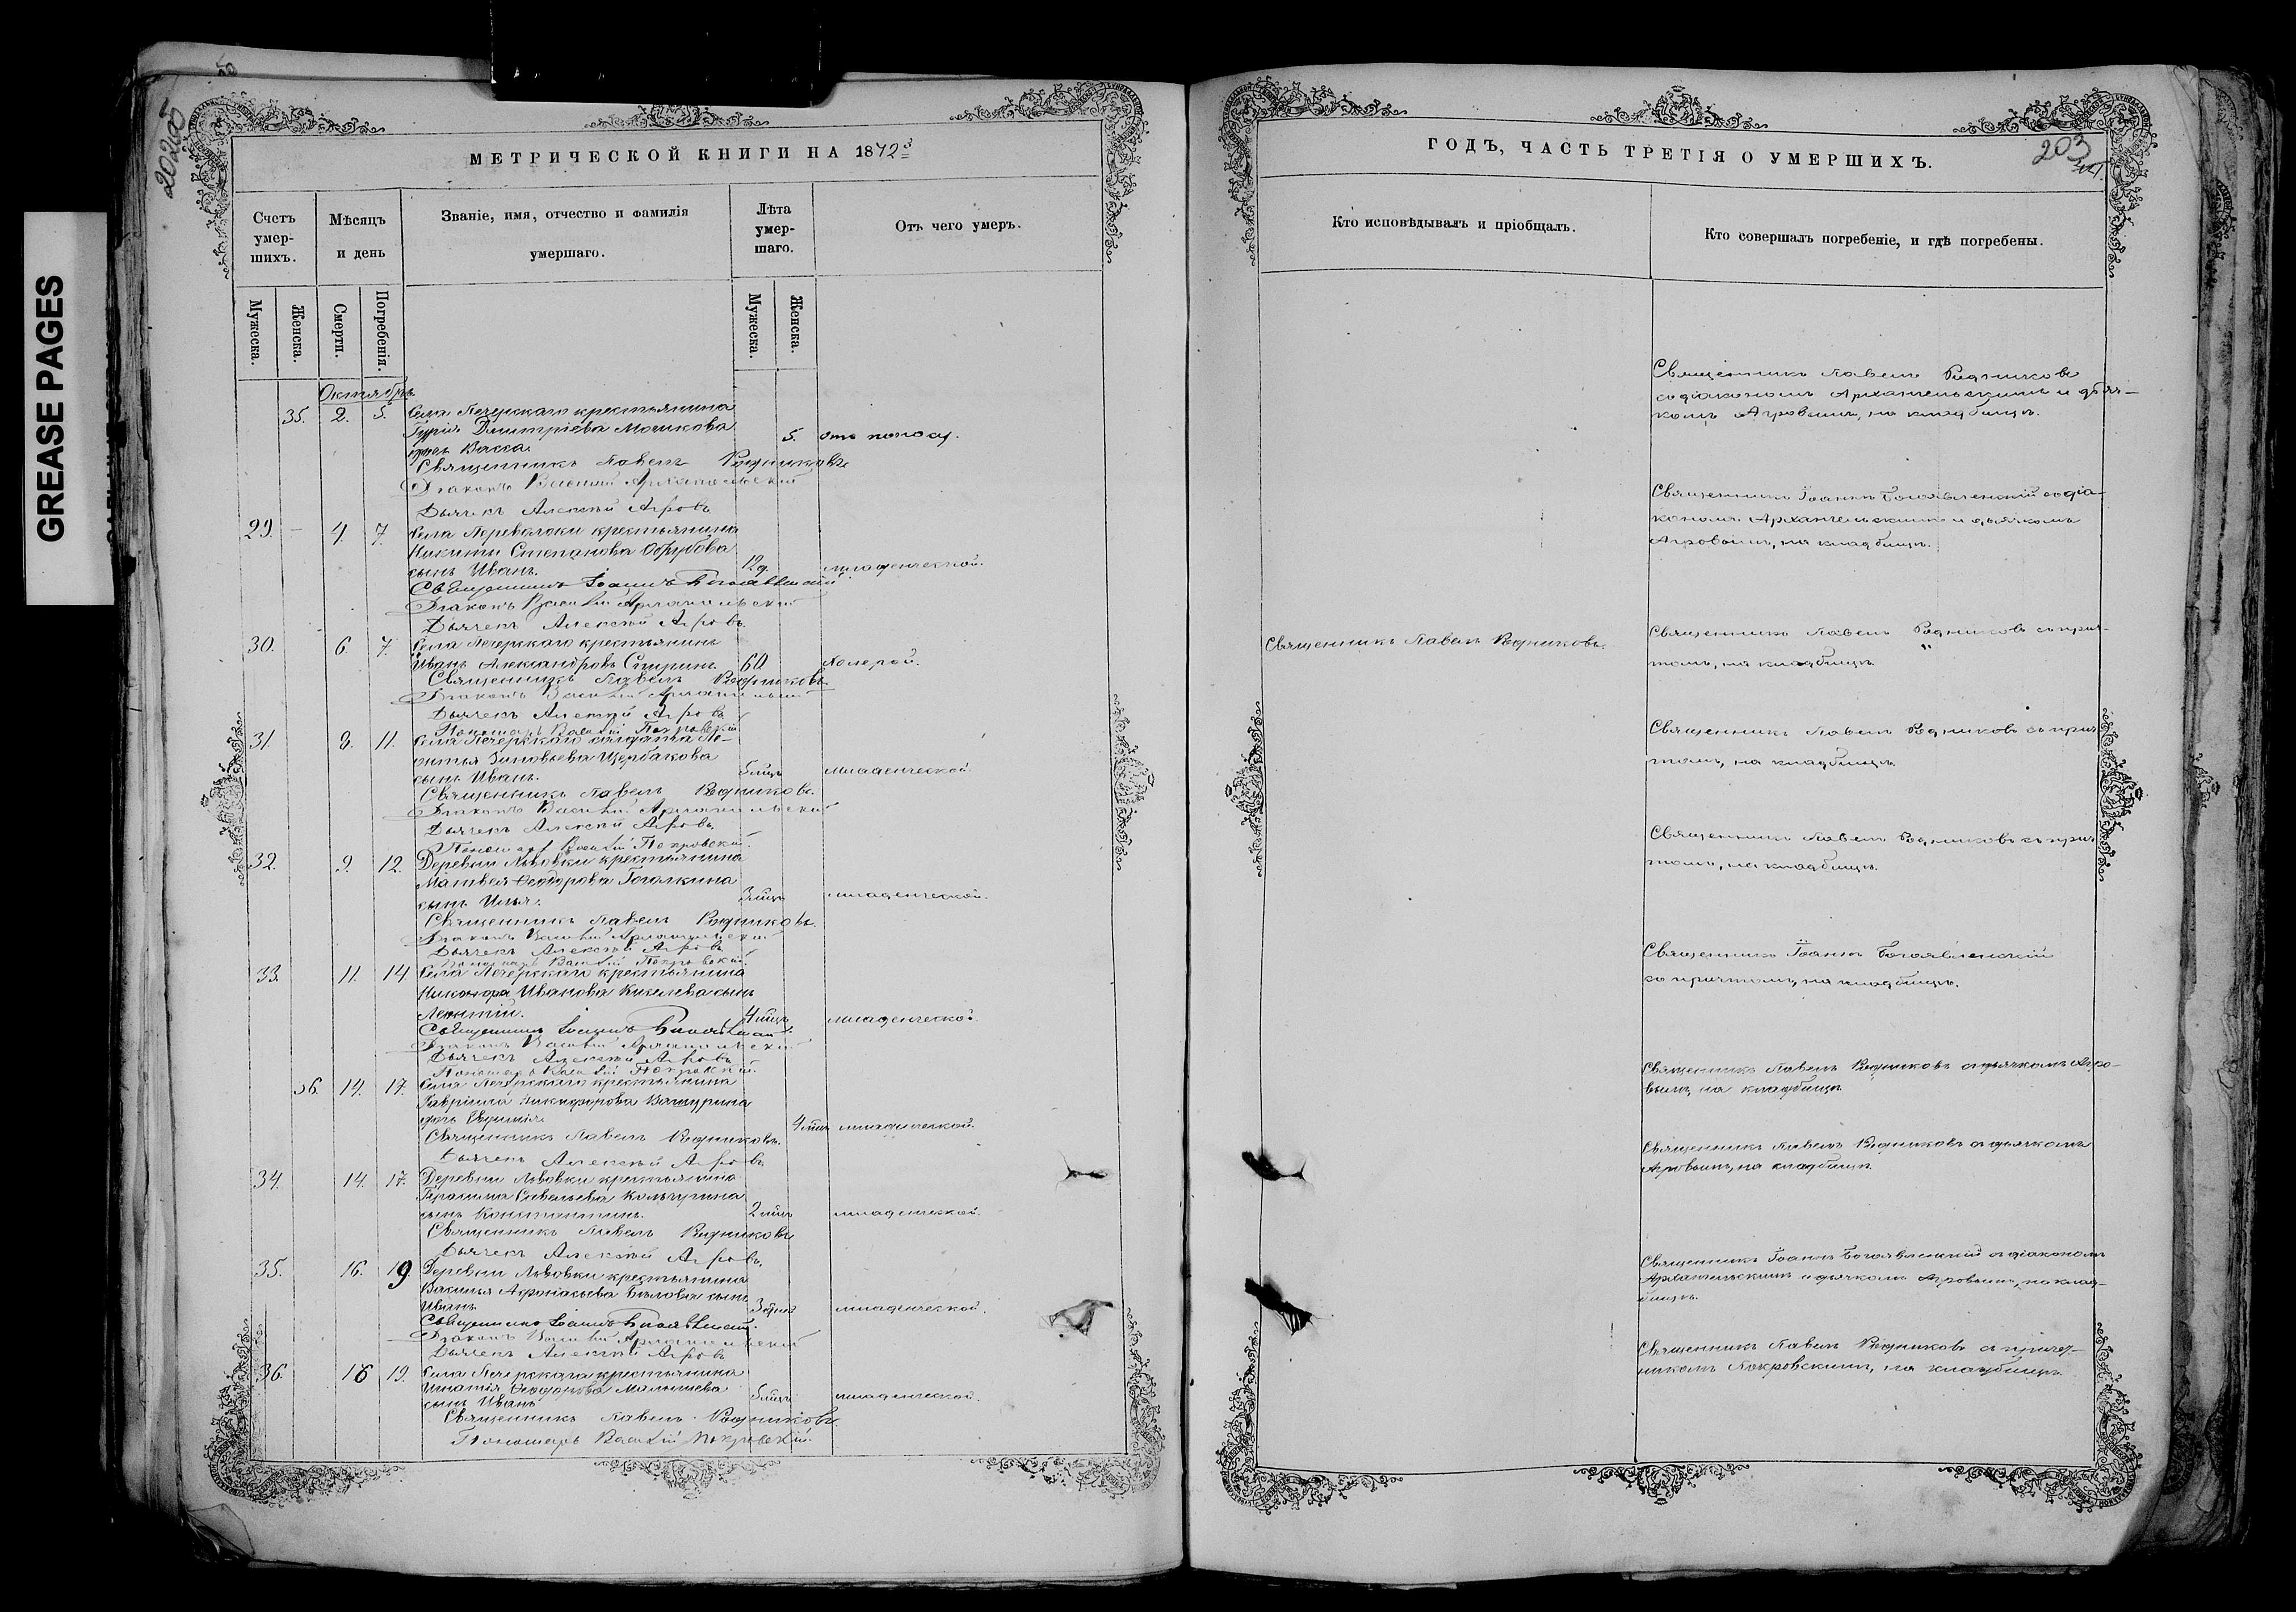 GREASE PAGES
202об
МЕТРИЧЕСКОЙ КНИГИ НА 1872й
Счетъ умер-шихъ.
Мѣсяцъ и день
Званіе, имя, отчество и фамилія умершаго.
Лѣта умер-шаго.
Отъ чего умеръ.
Мужеска.
Женска.
Смерти.
Погребенія.
Мужеска.
Женска.
Октябрь
35. 2. 5. Села Печерскаго крестьянина
Гурія Дмитріева Мошкова
дочь Васса. 5. отъ поносу.
Священникъ Павелъ Родниковъ
Діаконъ Василій Архангельскій
Дьячекъ Алексѣй Агровъ
29. – 4. 7. Села Переволоки крестьянина
Никиты Степанова Обрубова
сынъ Иванъ. 12 д. младенческой.
Священникъ Іоаннъ Богоявленскій
Діаконъ Василій Архангельскій
Дьячекъ Алексѣй Агровъ
30. 6. 7. Села Печерскаго крестьянинъ
Иванъ Александровъ Спиринъ. 60 Холерой.
Священникъ Павелъ Родниковъ
Діаконъ Василій Архангельскій
Дьячекъ Алексѣй Агровъ
Пономарь Василій Покровскій
31. 8. 11. Села Печерскаго солдата Ле-
онтья Зиновьева Щербакова
сынъ Иванъ. 5 мцъ младенческой
Священникъ Павелъ Родниковъ.
Діаконъ Василій Архангельскій
Дьячекъ Алексѣй Агровъ
Пономарь Василій Покровскій.
32. 9. 12. Деревни Львовки крестьянина
Матвея Ѳеодорова Гогалкина
сынъ Илья. 3 мцъ младенческой.
Священникъ Павелъ Родниковъ.
Діаконъ Василій Архангельскій
Дьячекъ Алексѣй Агровъ
Пономарь Василій Покровскій.
33. 11. 14 Села Печерскаго крестьянина
Никонора Иванова Киселева сынъ
Леонтій. 4 мцъ младенческой
Священникъ Іоаннъ Богоявленскій
Діаконъ Василій Архангельскій
Дьячекъ Алексѣй Агровъ
Пономарь Василій Покровскій.
36. 14. 17. Села Печерскаго крестьянина
Гавріила Никифорова Вашурина
дочь Евфимія. 4 мцъ младенческой.
Священникъ Павелъ Родниковъ.
Дьячекъ Алексѣй Агровъ
34. 14. 17. Деревни Львовки крестьянина
Герасима Савельева Кольчугина
сынъ Константинъ. 2 мцъ младенческой.
Священникъ Павелъ Родниковъ
Дьячекъ Алексѣй Агровъ
35. 16. 19. Деревни Львовки крестьянина
Василья Афонасьева Бѣлова сынъ
Иванъ младенческой.
Священникъ Іоаннъ Богоявленскій.
Діаконъ Василій Архангельскій
Дьячекъ Алексѣй Агровъ
36. 16 19. Села Печерскаго крестьянина
Игнатія Ѳеодорова Малышева
сынъ Иванъ 5 мцъ младенческой.
Священникъ Павелъ Родниковъ.
Пономарь Василій Покровскій.
ГОДЪ, ЧАСТЬ ТРЕТІЯ О УМЕРШИХЪ.
203
Кто исповѣдывалъ и пріобщалъ.
Кто совершалъ погребеніе, и гдѣ погребены.
Священникъ Павелъ Родниковъ
со діакономъ Архангельскимъ и дьяч-
комъ Агровымъ, на кладбищѣ.
Священникъ Іоаннъ Богоявленскій со діа-
кономъ Архангельскимъ и дьячкомъ
Агровымъ, на кладбищѣ.
Священникъ Павелъ Родниковъ.
Священникъ Павелъ Родниковъ съ прич-
томъ, на кладбищѣ
Священникъ Павелъ Родниковъ съ прич
томъ, на кладбищѣ
Священникъ Павелъ Родниковъ съ прич
томъ, на кладбищѣ.
Священникъ Іоаннъ Богоявленскій
съ причтомъ, на кладбищѣ.
Священникъ Павелъ Родниковъ съ дьячкомъ Агро-
вымъ, на кладбищѣ
Священникъ Павелъ Родниковъ съ дьячкомъ
Агровымъ, на кладбищѣ.
Священникъ Іоаннъ Богоявленскій съ діакономъ
Архангельскимъ и дьячкомъ Агровымъ, на клад-
бищѣ.
Священникъ Павелъ Родниковъ съ причет-
никомъ Покровскимъ, на кладбищѣ